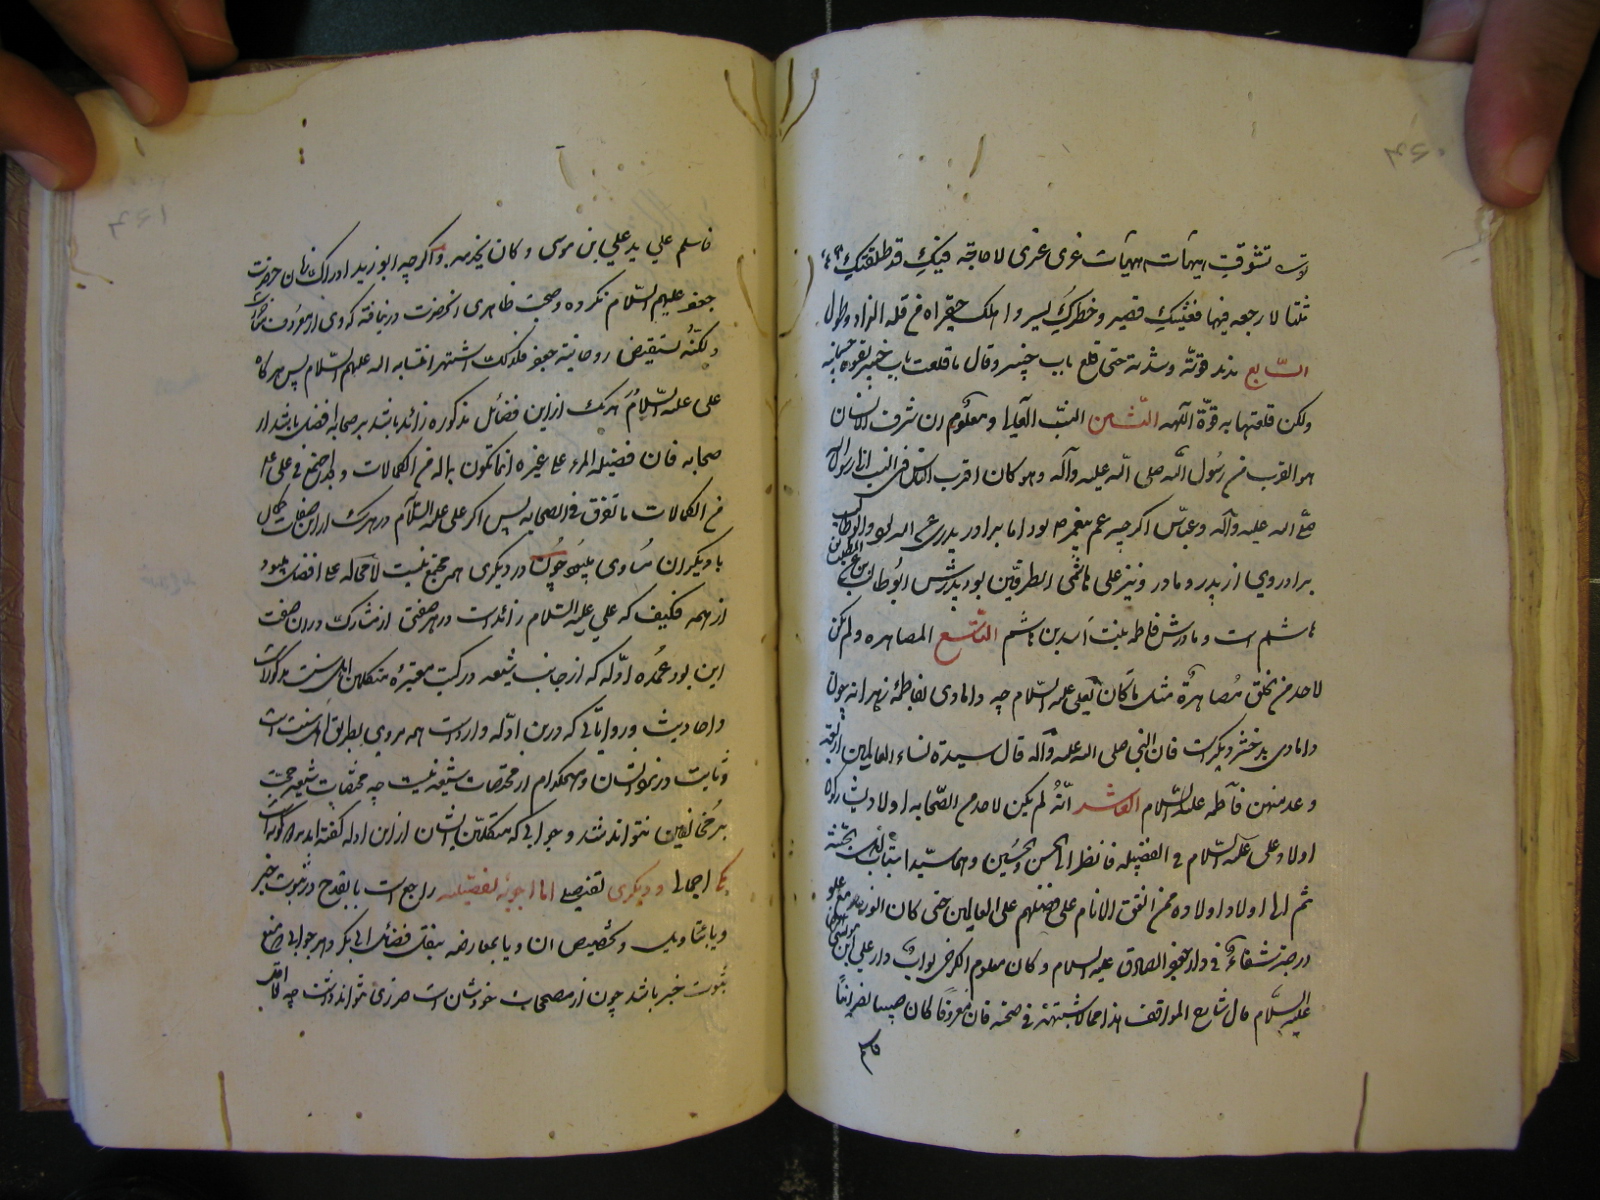 تشوقت هیهات هیهات غری غیری لا حاجة فیک قد طلقتک
ثلثا لا رجعه فیها فعیشک قصیر و خطرک یسیر و املک حقیر اه من قله الزاد و طول
السّابع مزید قوّته و شدته حتی قلع باب خیبر و قال ما قلعت باب خیبر بقوه جسمانیه
ولکن قلعتها به قوّة الٓهیه الثّامن النسب العالی و معلوم ان شرف الانسان
هو القرب من رسُول اللّه صلی اللّه علیه وآله و هو کان اقرب الناس فی النسب الی رسول الله
صلی الله علیه وآله و عبّاس اگرچه عم پیغمبر بود اما برادر پدری عبد الله بود و ابوطالب
برادر وی از پدر و مادر و نیز علی هاشمی الطرفین بود پدرش ابُوطالب بن عبد المطلب بن
هاشم است و مادرش فاطمه بنت اَسد بن هاشم التّاسع المصاهره و لم یکن
لاحد من الخلق مُصاهرة مثل ما کان لعلی علیه السّلام چه دامادی بفاطمهٔ زهرا نه چون
دامادی بدختر دیگر است فان النبی صلی الله علیه وآله قال سیدة نساء العالمین اربعة
و عد منهن فاطمه علیها السّلام العاشر انّهُ لم یکن لاحد من الصّحابه اولاد یشارکوا
اولاد علی علیه السّلام فی الفضیله فانظر الی الحسن و الحُسَین و هما سیّدا شباب اهل الجنّة
ثم الی اولاد اولاده ممن اتفق الانام علی فضلهم علی العالمین حتی کان ابو یزید مع علو
درجته سقاء فی دار جعفر الصادق علیه السلام و کان معروف الکرخی بوّاب دار علی ابن موسی الرضا
علیه السَّلام قال شارح المواقف هذا مما لا شبهة فی صحته فان معروفا کان صبیا نصرانیًّا
فاسلم علی ید علی بن موسی و کان یخدمه و اگرچه ابو یزید ادراک زمان حضرت
جعفر علیهم السّلام نکرده و صحبت ظاهری آنحضرت درنیافته که وی از معروف متاخر است
و لکنّه یستفیض روحانیة جعفر فلذلک اشتهر انتسابه الیه علیهم السّلام پس هرگاه
علی علیه السّلام در هر یک از این فضائل مذکوره زائد باشد بر صحابه افضل باشد از
صحابه فان فضیلة المرء علی غیره انما تکون بماله من الکمالات و قد اجتمع فی علی
من الکمالات ما تفرق فی الصحابه پس اگر علی علیه السّلآم در هر یک از این صفات کمال
با دیگران مُساوی میبُود چُون در دیگری همه مجتمع نیست لا محاله علی افضل میبود
از همه فکیف که علی علیه السّلام زائد است در هر صفتی از مشارک در ان صفت
این بود عمُده ادّله که از جانب شیعه در کتب معتبرهٔ متکلمین اهل سنت مذکور است
و احادیث و روایاتی که در ین ادّله وارد است همه مروی بطریق اهل سنت است
و ثابت در نزد ایشان و هیچکدام از مختصات شیعه نیست چه مختصات شیعه حجت
بر مُخالفین نتواند شد و جوابی که متکلمین ایشان از این ادله گفته اند بر دو گونه است
یکی اجمالی و دیگری تفصیلی اما اجوبهٔ تفصیلیه راجع است یا بقدح در ثبوت خبر
و یا بتاویل و تخصیص ان و یا بمعارضه بنقل فضائل ابی بکر و هر جوابی که بمنع
ثبوت خبر باشد چون از مصححات خودشان است ضرری نتواند داشت چه